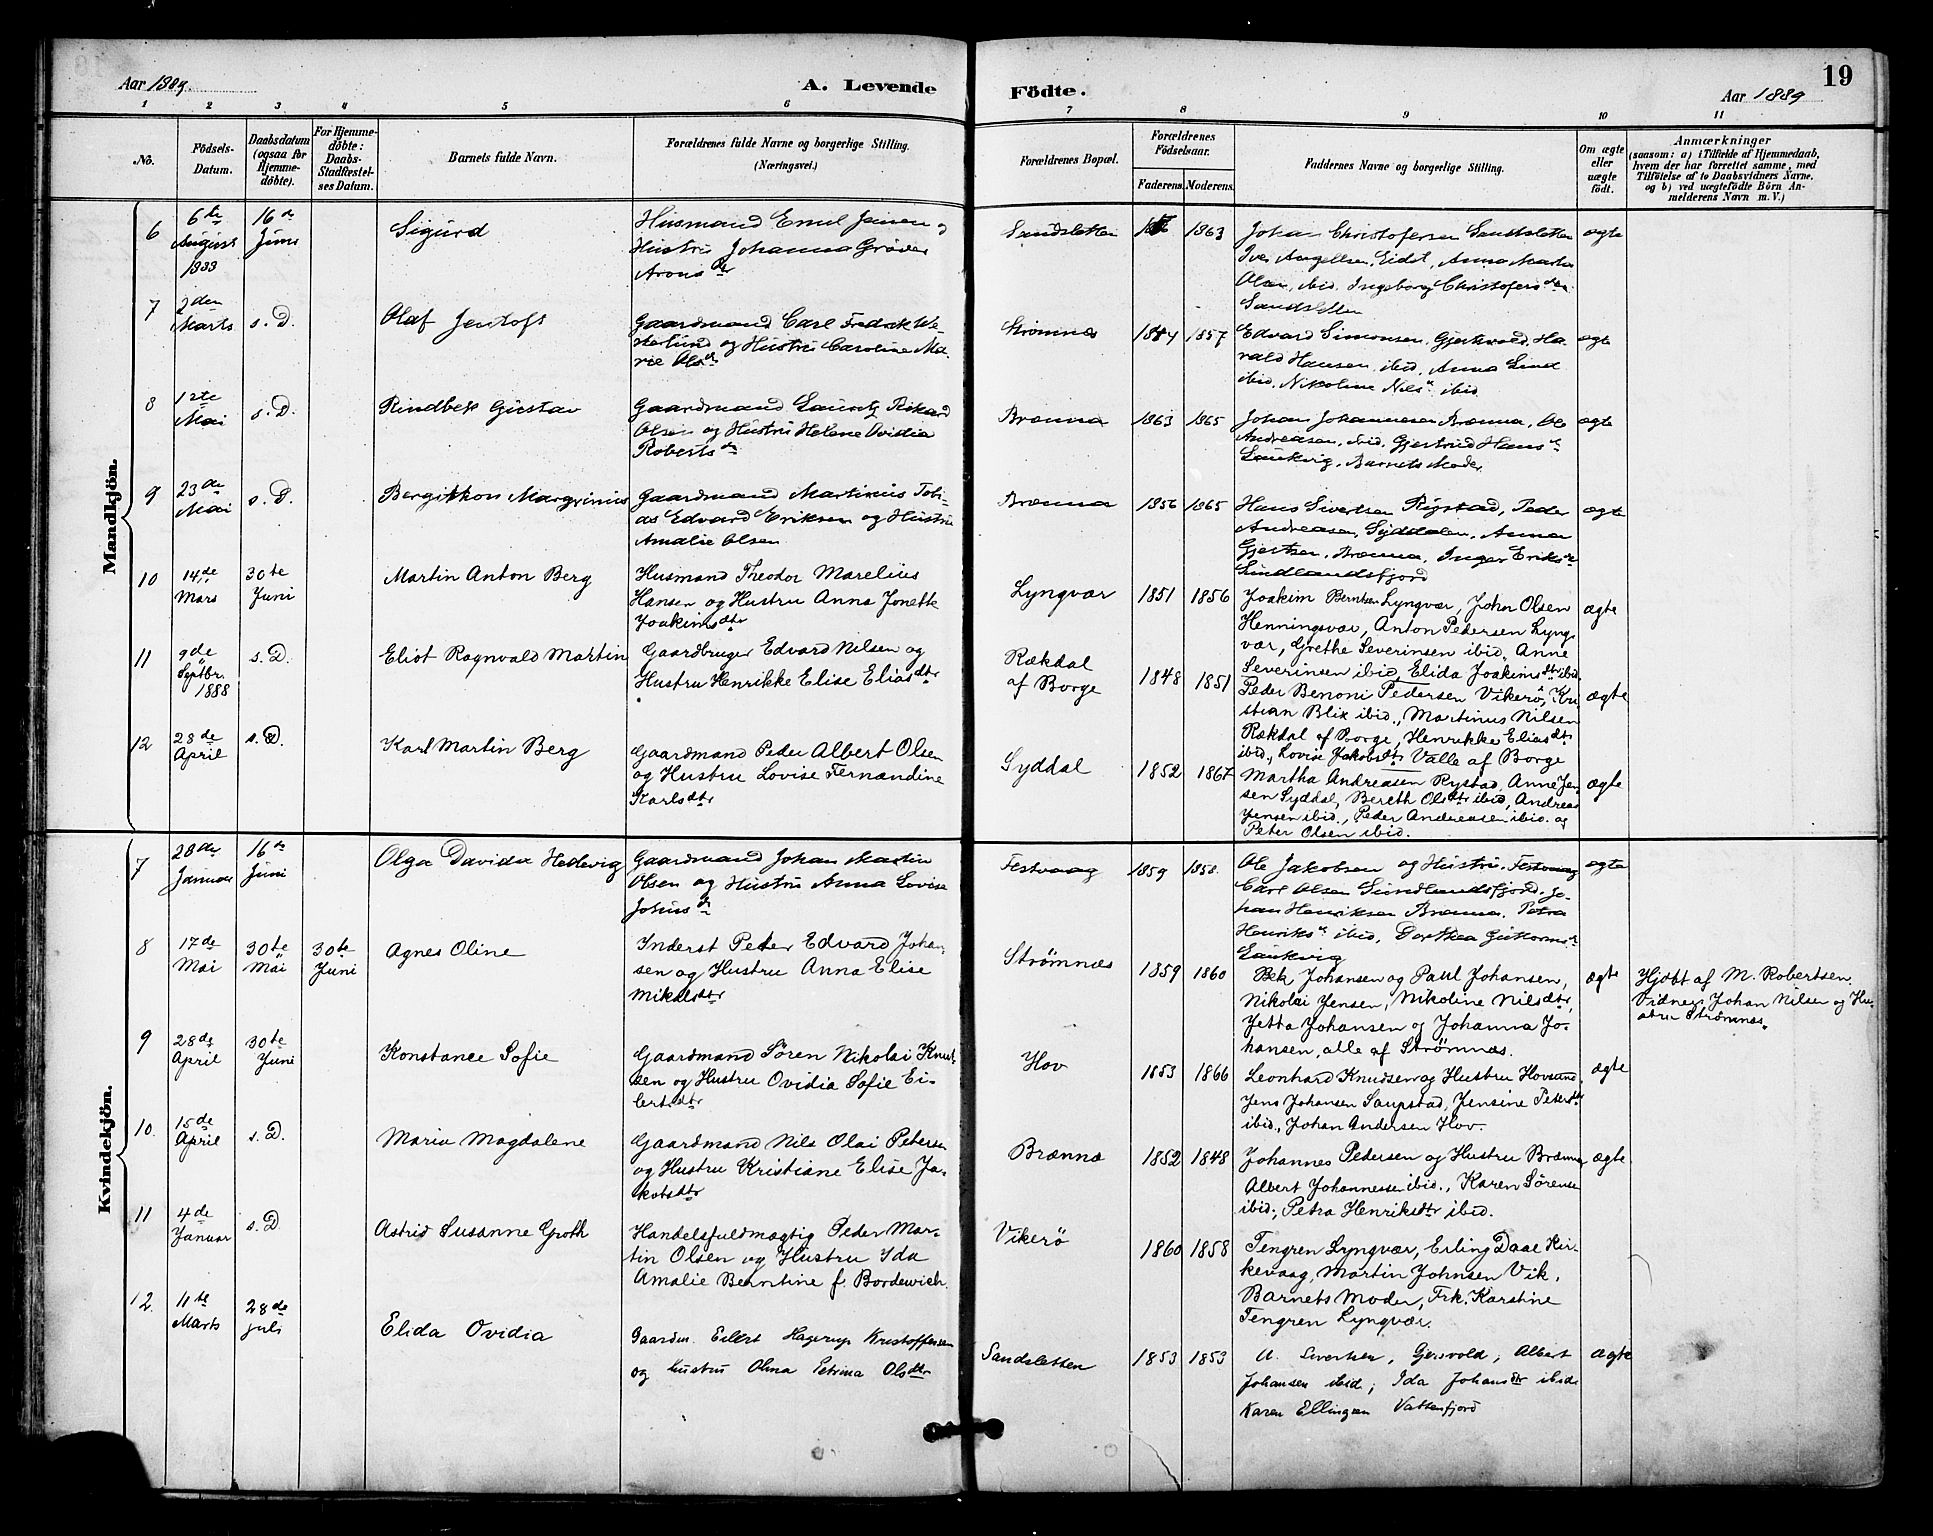 Aar 1889.
A. Levende
1 2 3 4 5 6
No.
Födsels-Datum.
Daabsdatum (ogsaa for Hjemme-döbte).
For Hjemme-döbte: Daabs-Stadfestel-ses Datum.
Barnets fulde Navn.
Forældrenes fulde Navne og borgerlige Stilling.
(Næringsvei.)
Födte.
19
Aar 1889
7 8 9 10 11
Forældrenes Bopæl.
Forældrenes Födselsaar.
Faderens. Moderens.
Faddernes Navne og borgerlige Stilling.
Om ægte eller uægte födt.
Anmærkninger
(saasom: a) i Tilfælde af Hjemmedaab,
hvem der har forrettet samme, med
Tilföielse af to Daabsvidners Navne,
og b) ved uægtefödte Börn An-
melderens Navn m. V.)
Mandkjön.
6 6te August 1888 16de Juni Sigurd
Husmand Emil Jensen og
Hustru Johanna
Arons dtr
Sandsletten 1863
Johan Christofersen Sandsletten
Anna Marta
Olsen, ibid. Ingeborg Christofers dtr
Sandsletten
ægte
7 2den Marts s. D. Olaf Jentoft
Gaardmand Carl Fredrik We-
sterlund og Hustru Caroline Ma-
rie Ols dr
Strømnes 1857
Edvard Simonsen, Ha-
rald Hansen ibid, Anna Lind
ibid, Nikoline Nils dr ibid
ægte
8 12te Mai s. D. Rindbek Gustav
Gaardmand Lauritz Rikard
Olsen og Hustru Helene Ovidia
Roberts dr
Brænna 1863 1865
Johan Johannesen Brænna, Ole
Andreasen, ibid, Gjertrud Hans dr
Laukvig, Barnets Moder
ægte
9 23de Mai s. D. Bergithon Margrinius
Gaardmand Martinus Tobi-
as Edvard Eriksen og Hustru
Amalie Olsen
Brænna 1856 1865
Hans Sivertsen Rystad, Peder
Andreasen, Syddalen, Anna
Gjertsen, Brænna, Inger Eriks dr
Sundlandsfjord
ægte
10 14de Mars 30te Juni Martin Anton Berg
Husmand Theodor Marelius
Hansen og Hustru Anna Jonette
Joakimsdtr
Lyngvær 1851 1856
Joakim Berntsen Lyngvær, John Olsen
Henningsvær, Anton Pedersen Lyng-
vær, Grethe Severinsen ibid, Anne
Severinsen ibid, Elida Joakimsdtr ibid.
ægte
11 9de Septbr. 1888 s. D. Eliot Ragnvald Martin
Gaardbruger Edvard Nilsen og
Hustru Henrikke Elise Eliasdtr
Rækdal
af Borge
1848 1851
Peder Benoni Pedersen Vikerö, Kri-
stian Blix ibid., Martinus Nilsen
Rækdal af Borge, Henrikke Eliasdtr
ibid., Lovise Jakobsdtr Valle af Borge
ægte
12 28de April s. D. Karl Martin Berg
Gaardmand Peder Albert Olsen
og Hustru Lovise Fernandine
Karlsdtr
Syddal 1852 1867
Martha Andreasen Rystad, Anne Jen-
sen Syddal, Bereth Olsdtr ibid, Andreas
Jensen ibid., Peder Andreasen ibid. og
Peter Olsen ibid.
ægte
Kvindekjön.
7 28de Januar 16de Juni Olga Davida Hedevig
Gaardmand Johan Martin
Olsen og Hustru Anna Lovise
Johns dr
Festvaag 1859 1858.
Ole Jakobsen og Hustru, Festvaag
Carl Olsen Sundlandsfjord, Jo-
han Henriksen Brænna, Petra
Henriks dr ibid, Dorthea
Laukvig
ægte
8 17de Mai 30te Mai 30te Juni Agnes Oline
Inderst Peter Edvard Johan-
sen og Hustru Anna Elise
Mikalsdtr
Strømnæs 1859 1860
Bek Johansen og Paul Johansen,
Nikolai Jensen, Nikoline Nilsdtr,
Jetta Johansen og Johanna Jo-
hansen, alle af Strømnæs.
ægte
Hjdöbt af M. Robertsen.
Vidner: Johan Nilsen og Hu-
stru Strømnæs.
9 28de April 30te Juni Konstance Sofie
Gaardmand Sören Nikolai Knut-
sen og Hustru Ovidia Sofie Ei-
lertsdtr
Hov 1853 1866
Leonhard Knudsen og Hustru Hovsund,
Jens Johansen Saupstad, Jensine Petersdtr
ibid., Johan Andersen Hov.
ægte
10. 15de April s. D. Maria Magdalene
Gaardmand Nils Olai Petersen
og Hustru Kristiane Elise Ja-
kobsdtr
Brænnæ 1852 1848
Johannes Pedersen og Hustru Brænna,
Albert Johannessen ibid., Karen Sörensen
ibid., Petra Henriksdtr ibid.
ægte
11 4de Januar s. D Astrid Susanne Groth
Handelsfuldmægtig Peder Mar-
tin Olsen og Hustru Ida
Amalie Berntine f. Bordewich.
Vikerö 1860 1858
Tengren Lyngvær, Erling Daae Kir-
kevaag, Martin Johnsen Vik,
Barnets Moder, Frk. Karstine
Tengren Lyngvær.
12. 11te Marts 28de Juli Elida Ovidia
Gaardm. Eilert Hagerup Kristoffersen
og hustru Olina Petrina Olsdtr
Sandsletten 1853 1853
Sivertsen, Albert
Johansen ibid, Ida Johansdtr ibid
Karen Ellingsen Vattenfjord
ægte